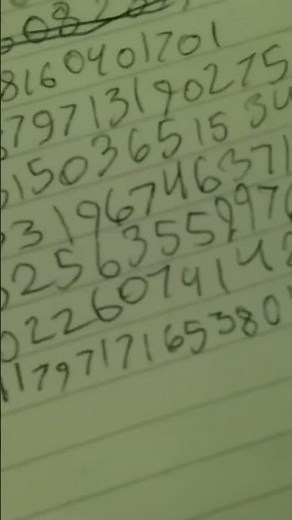 8160401701
79713190275
15036515 34
319674637
256355997
0226074142
1179717165380